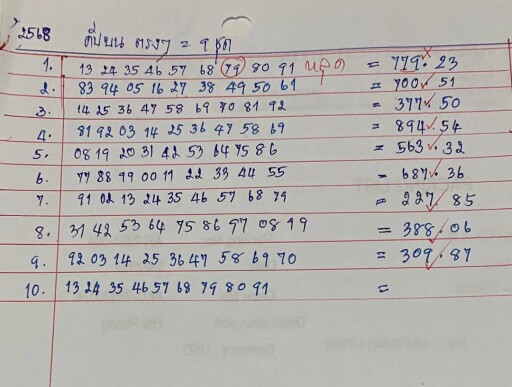 2568 ตี่บน ตรงๆ = 9 ชุด
1. 13 24 35 46 57 68 79 80 91 หลุด = 779. 23
2. 83 94 05 16 27 38 49 50 61 = 700. 51
3. 14 25 36 47 58 69 70 81 92 = 377. 50
4. 81 92 03 14 25 36 47 58 69 = 894. 54
5. 08 19 20 31 42 53 64 75 86 = 563. 32
6. 77 88 99 00 11 22 33 44 55 = 687. 36
7. 91 02 13 24 35 46 57 68 79 = 227. 85
8. 31 42 53 64 75 86 97 08 19 = 388. 06
9. 92 03 14 25 36 47 58 69 70 = 309. 87
10. 13 24 35 46 57 68 79 80 91 =